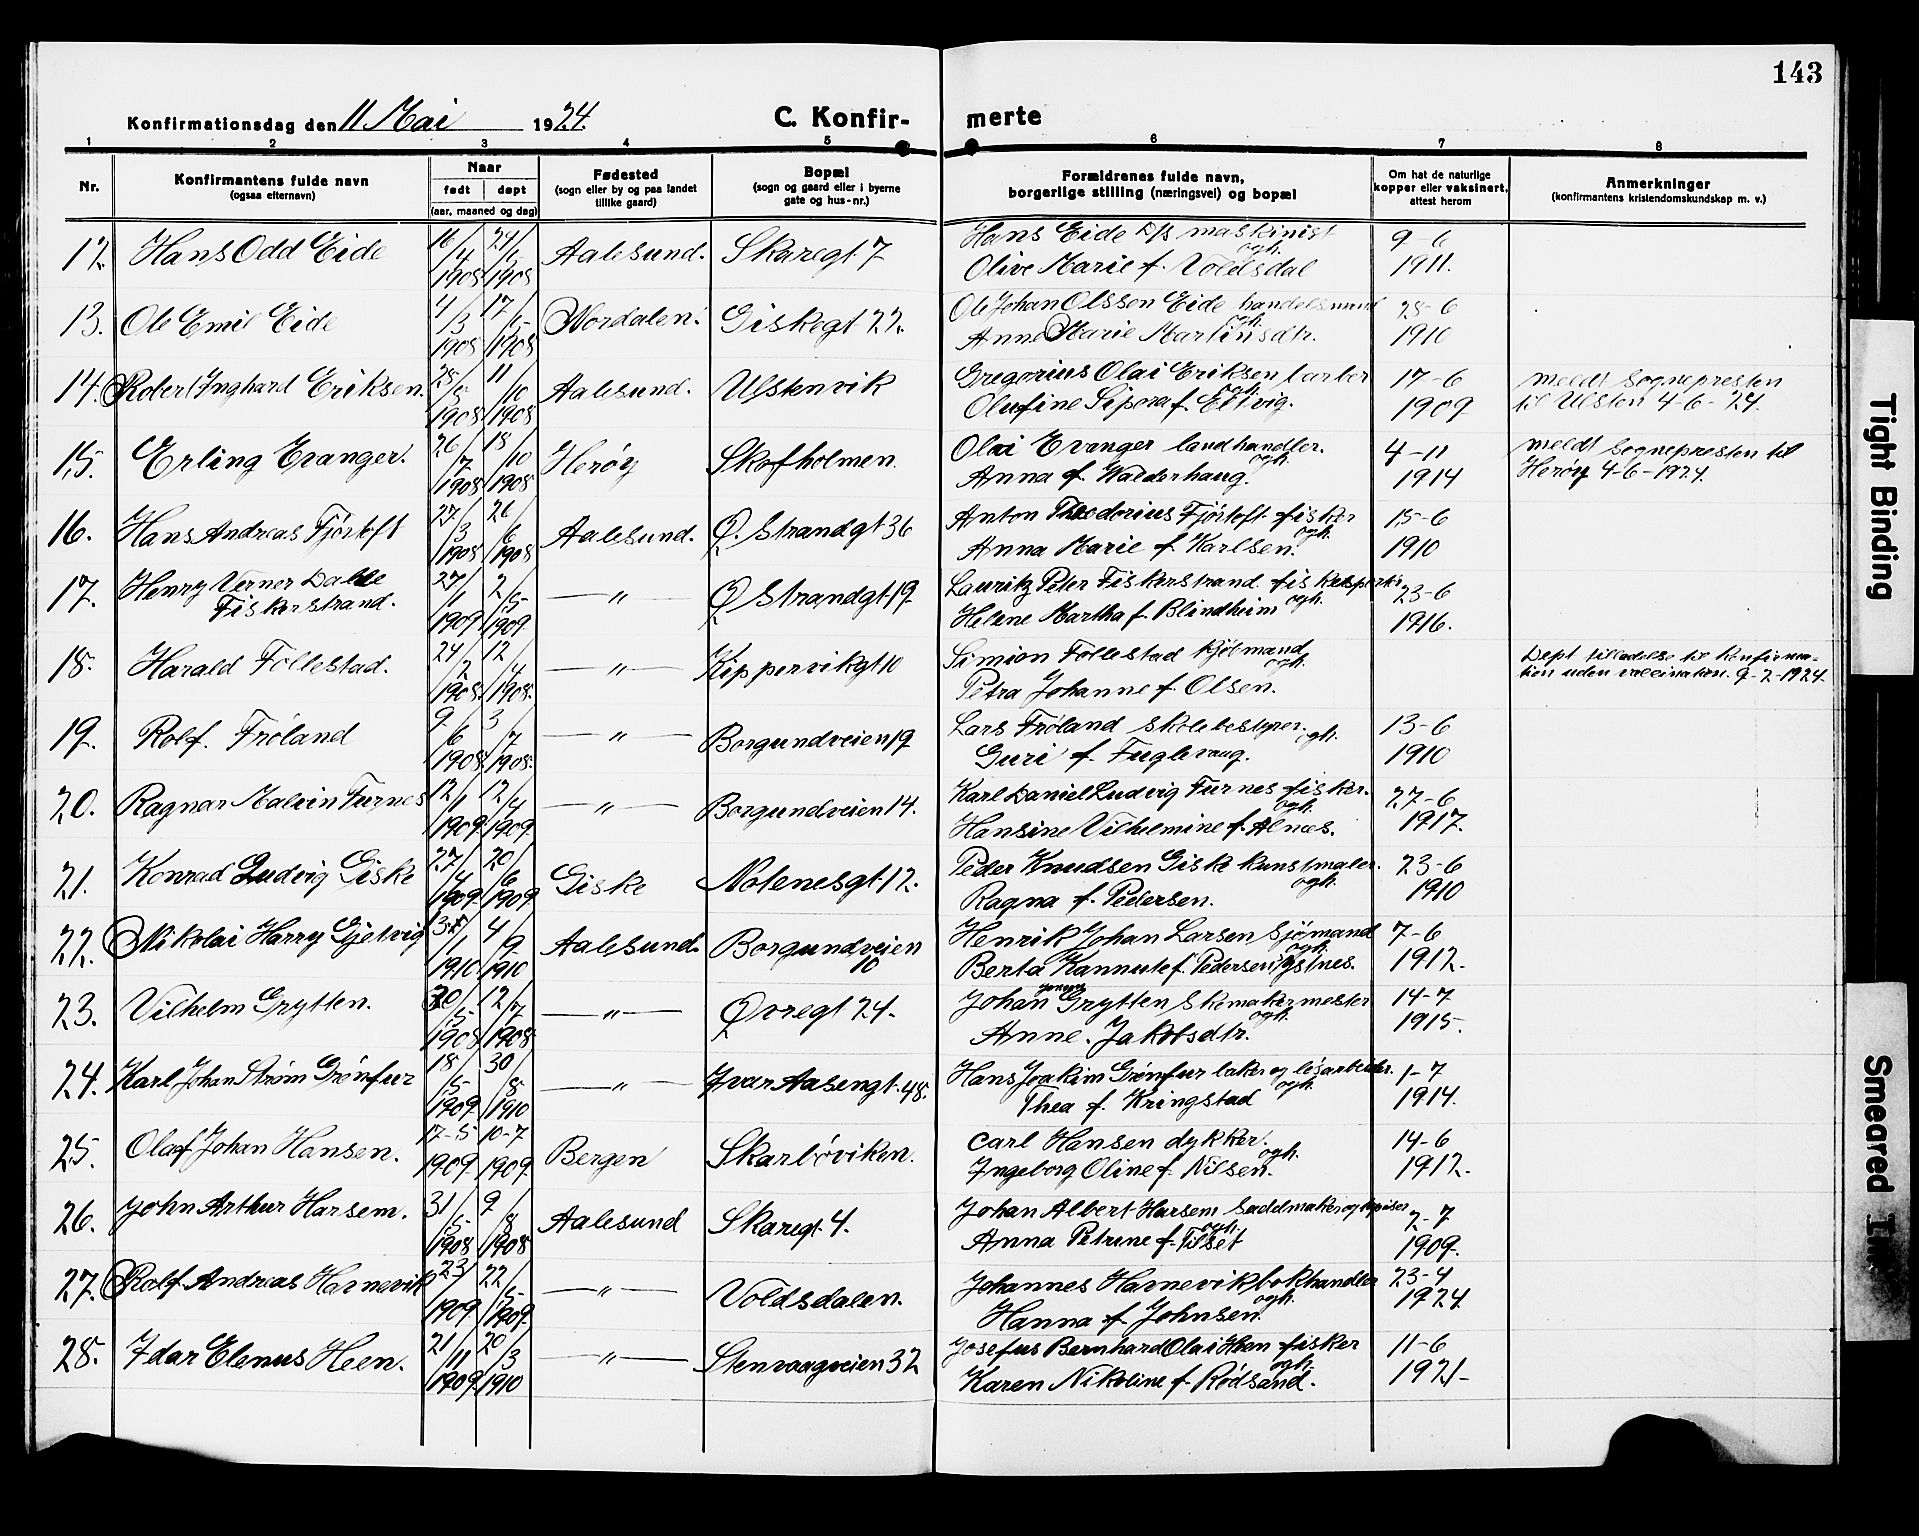 143
Konfirmationsdag den 11 Mai 1924. C. Konfir- merte
1 2 3 4 5 6 7 8
Nr. Konfirmantens fulde navn (ogsaa efternavn) Naar født døpt (aar, maaned og dag) Fødested (sogn eller by og paa landet tillike gaard) Bopæl (sogn og gaard eller i byerne gate og hus-nr.) Forældrenes fulde navn, borgerlige stilling (næringsvei) og bopæl Om hat de naturlige kopper eller vaksinert, attest herom Anmerkninger (konfirmantens kristendomskundskap m. v.)
12. Hans Odd Eide 16/4 1908 Aalesund. Skaregt 7 Hans Eide D/s maskinist ogh. 9-6
Olive Marie f. Voldsdal 1911.
13. Ole Emil Eide 4/3 1908 17/5 1908 Nordalen. Giskegt 22. Ole Johan Olsson Eide handelsmand ogh. 28-6
Anne Marie Martinsdtr. 1910
14. Robert Inghard Eriksen. 11/10 1908 Aalesund. Ulstenvik Gregorius Olai Eriksen ogh. 17-6 meldt sognepresten
Olufine Sipora f. Eltvig. 1909 til Ulsten 4-6-24.
15. Erling Evanger. 26/7 1908 18/10 1908 Herøy Skofholmen. Olai Evanger landhandler. ogh. 4-11 meldt sognepresten til
Anna f. Walderhaug. 1914 Herøy 4-6-1924.
16. Hans Andreas Fjørtoft 27/3 1908 21/6 1908 Aalesund. Ø. Strandgt 36 Anton Theodorius Fjørtoft fisker ogh. 15-6
Anna Marie f. Karlsen. 1910
17. Henry Verner Dalle 27/1 1909 2/5 1909 —〃— Ø Strandgt 19. Lauritz Peter Fiskerstrand. ogh. 23-6
Fiskerstrand. Helene Martha f. Blindheim 1916.
18. Harald Follestad. 24/2 1908 12/4 1908. —〃— Kippervikgt 10 Simion Follestad kjølmand ogh. Dept. tilladelse til konfirma-
Petra Johanne f. Olsen. tion uden vaccination. 9-2-1924.
19. Rolf. Frøland 9/6 1908 3/7 1908. —〃— Borgundveien 19 Lars Frøland skolebestyrer. ogh. 13-6
Guri f. Fuglevaag. 1910
20. Ragnar Malvin Furnes 12/1 1909 12/4 1909. —〃— Borgundveien 14. Karl Daniel Ludvig Furnes fisker. ogh. 27-6
Hansine Vilhelmine f. Alnæs. 1917.
21. Konrad Ludvig Giske 27/4 1909 20/6 1909 Giske Notenesgt 12. Peder Knudsen Giske kunstmaler. ogh. 23-6
Ragna f. Pedersen. 1910
22. Nikolai Harry Gjelvig 4/9 1910 Aalesund. Borgundveien 10 Henrik Johan Larsen Sjømand ogh. 7-6
Berta Kannute f. Pedersen 1912.
23. Vilhelm Grytten. 30/5 1908 12/7 1908 —〃— Øvregt 24. Johan Grytten Skomakermester ogh. 14-7
Anne. Jakobsdtr. 1915.
24. Karl Johan Strøm Grønfur 18/5 1909 30/8 1910 —〃— Ivar Aasengt. 48. Hans Joakim Grønfur baker og løsarbeider. ogh. 1-7
Thea f. Kringstad 1914.
25. Olaf Johan Hansen. 17-5 1909 10-7 1909 Bergen Skarbøviken. Carl Hansen dykker. ogh. 14-6
Ingeborg Oline f. Nilsen. 1912.
26. John Arthur Harsem. 31/5 1908 9/8 1908 Aalesund Skaregt 4. Johan Albert Harsem Saddmaker og ogh. 2-7
Anna Petrine f. Tilset 1909.
27. Rolf Andreas Harnevik 1909 22/5 1909 —〃— Voldsdalen. Johannes Harnevik bokhandler ogh. 23-4
Hanna f. Johnsen. 1924
28. Idar Elenus Heen. 21/11 1909 20/3 1910 —〃— Stenvaagveien 32 Josefus Bernhard Olai Heen fisker ogh. 11-6
Karen Nikoline f. Rødsand. 1921-
Tight Binding
Smeared